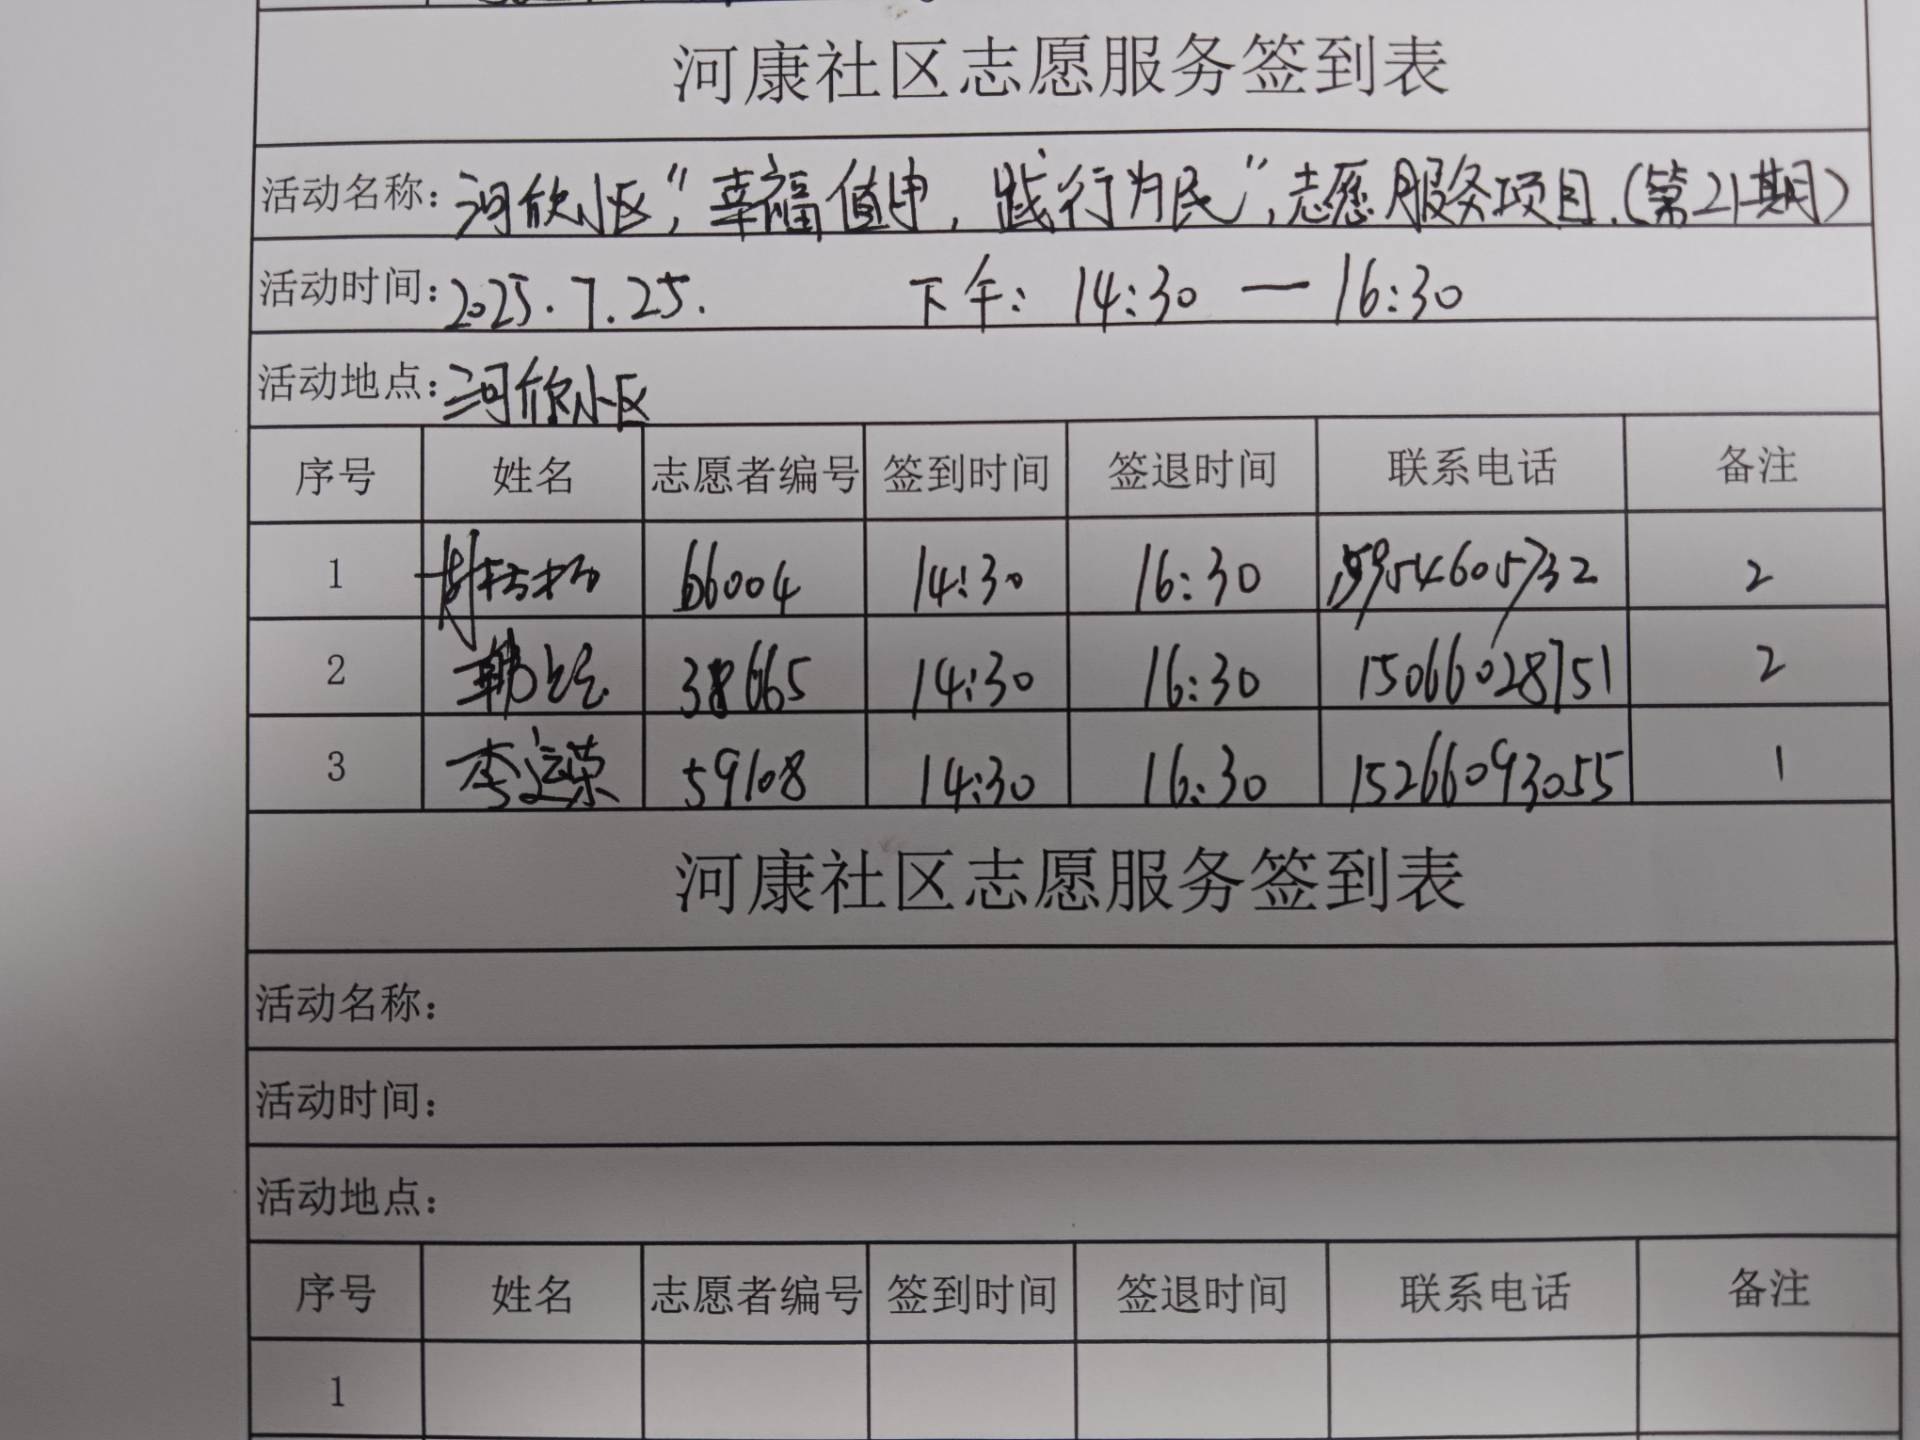 河康社区志愿服务签到表
活动名称：河欣小区，"幸福值申，践行为民"，志愿服务项目.（第21期）
活动时间：2025.7.25. 下午：14:30 — 16:30
活动地点：河欣小区
序号 姓名 志愿者编号 签到时间 签退时间 联系电话 备注
1 66004 14:30 16:30 15954605732 2
2 38665 14:30 16:30 15066028751 2
3 李运荣 59108 14:30 16:30 15266093055 1
河康社区志愿服务签到表
活动名称：
活动时间：
活动地点：
序号 姓名 志愿者编号 签到时间 签退时间 联系电话 备注
1